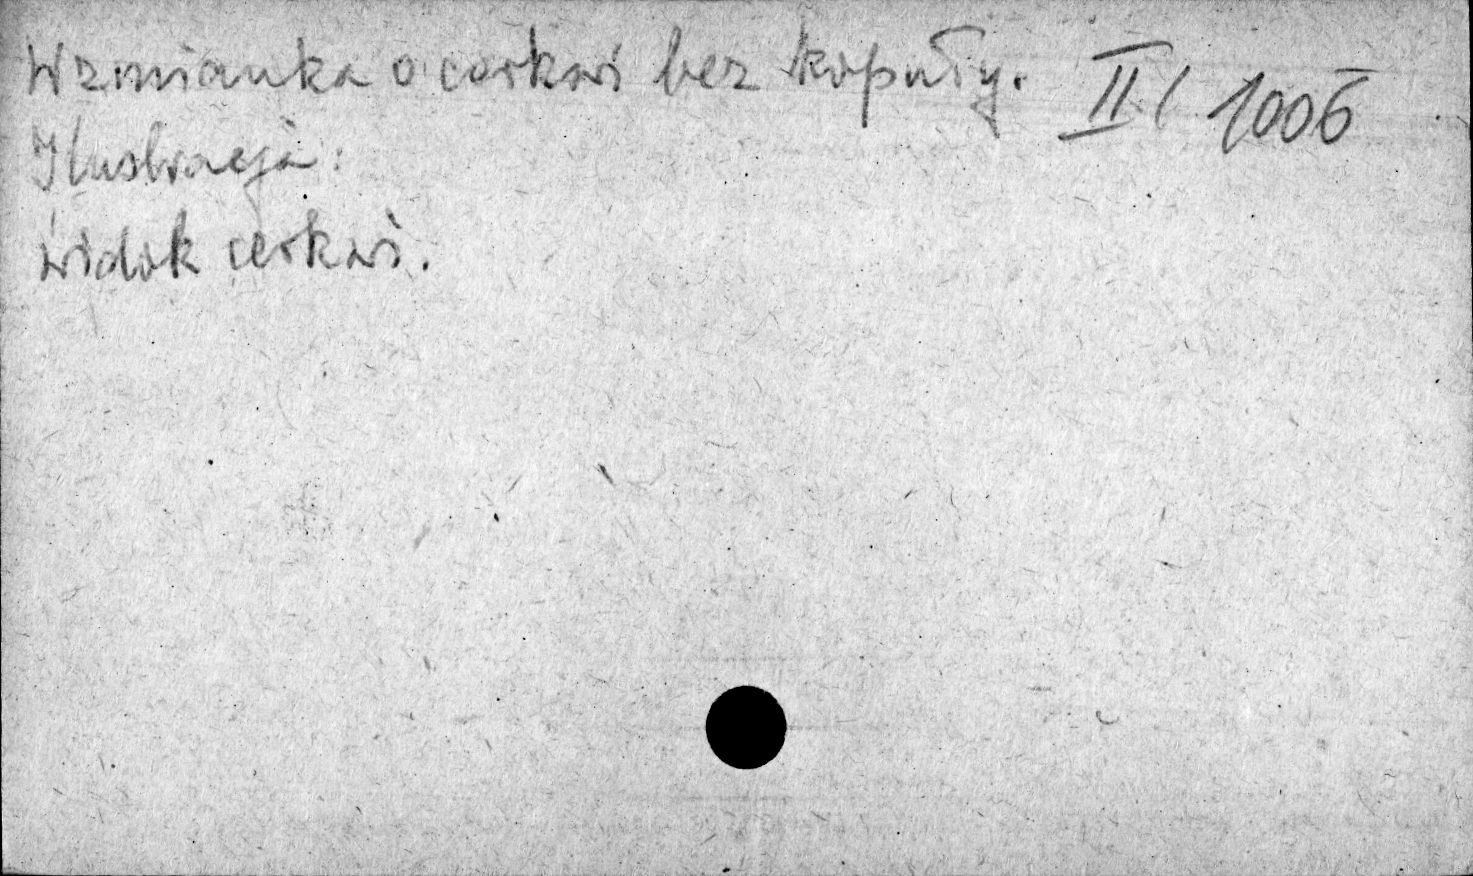 Wzmianka o cerkwi bez kopuły. II/1006
Ilustracja:
widok cerkwi.